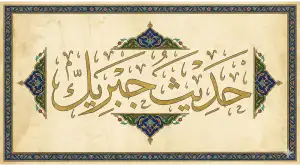 حديثُ جبريكّ